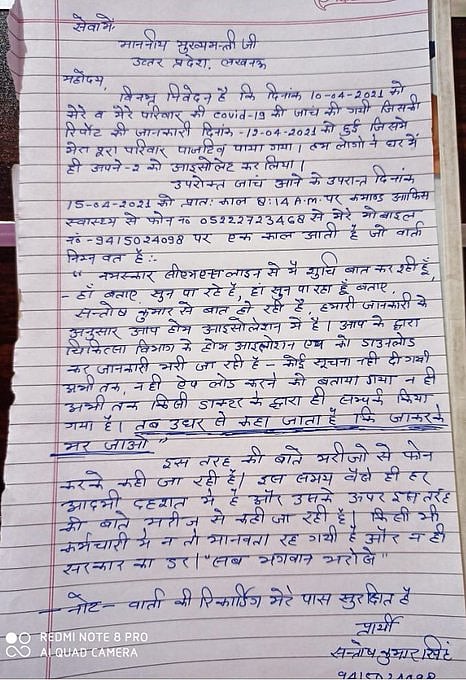 सेवामें,
माननीय मुख्यमन्त्री जी
उत्तर प्रदेश, लखनऊ
महोदय,
विनम्र निवेदन है कि दिनांक 10-04-2021 को
मेरे व मेरे परिवार की covid-19 की जांच की गयी जिसकी
रिपोर्ट की जानकारी दिनांक -12-04-2021 को हुई जिसमे
मेरा पूरा परिवार पाजटिव पाया गया। हम लोगो ने घर में
ही अपने-2 को आइसोलेट कर लिया।
उपरोक्त जांच आने के उपरान्त दिनांक
15-04-2021 को प्रातः काल 8:14 A.m. पर कमाण्ड आफिस
स्वास्थ्य से फोन no 05222723468 से मेरे मोबाइल
no -9415024098 पर एक काल आती है जो वार्ता
निम्न वत है:-
" नमस्कार सीएमएस लाइन से मैं शुचि बात कर रही हूँ,
- हाँ बताए, सुन पा रहे है, हां सुन पा रहा हूँ बताए,
सन्तोष कुमार से बात हो रही है, हमारी जानकारी के
अनुसार आप होम आइसोलेशन मे है। आप के द्वारा
चिकित्सा विभाग के होम आइसोलेशन एप्प को डाउनलोड
कर जानकारी भरी जा रही है - कोई सूचना नही दी गयी
अभी तक, नही ऐप लोड करने को बताया गया न ही
अभी तक किसी डाक्टर के द्वारा ही सम्पर्क किया
गया है। तब उधर से कहा जाता है कि जाकरके
मर जाओ "
इस तरह की बाते मरीजो से फोन
करके कही जा रही है। इस समय वैसे ही हर
आदमी दहशत मे है और उसके ऊपर इस तरह
की बाते मरीज से कही जा रही है। किसी भी
कर्मचारी मे न तो मानवता रह गयी है और न ही
सरकार का डर। "सब भगवान भरोसे"
- नोट - वार्ता की रिकार्डिंग मेरे पास सुरक्षित है
प्रार्थी
सन्तोष कुमार सिंह
9415024098
REDMI NOTE 8 PRO
AI QUAD CAMERA